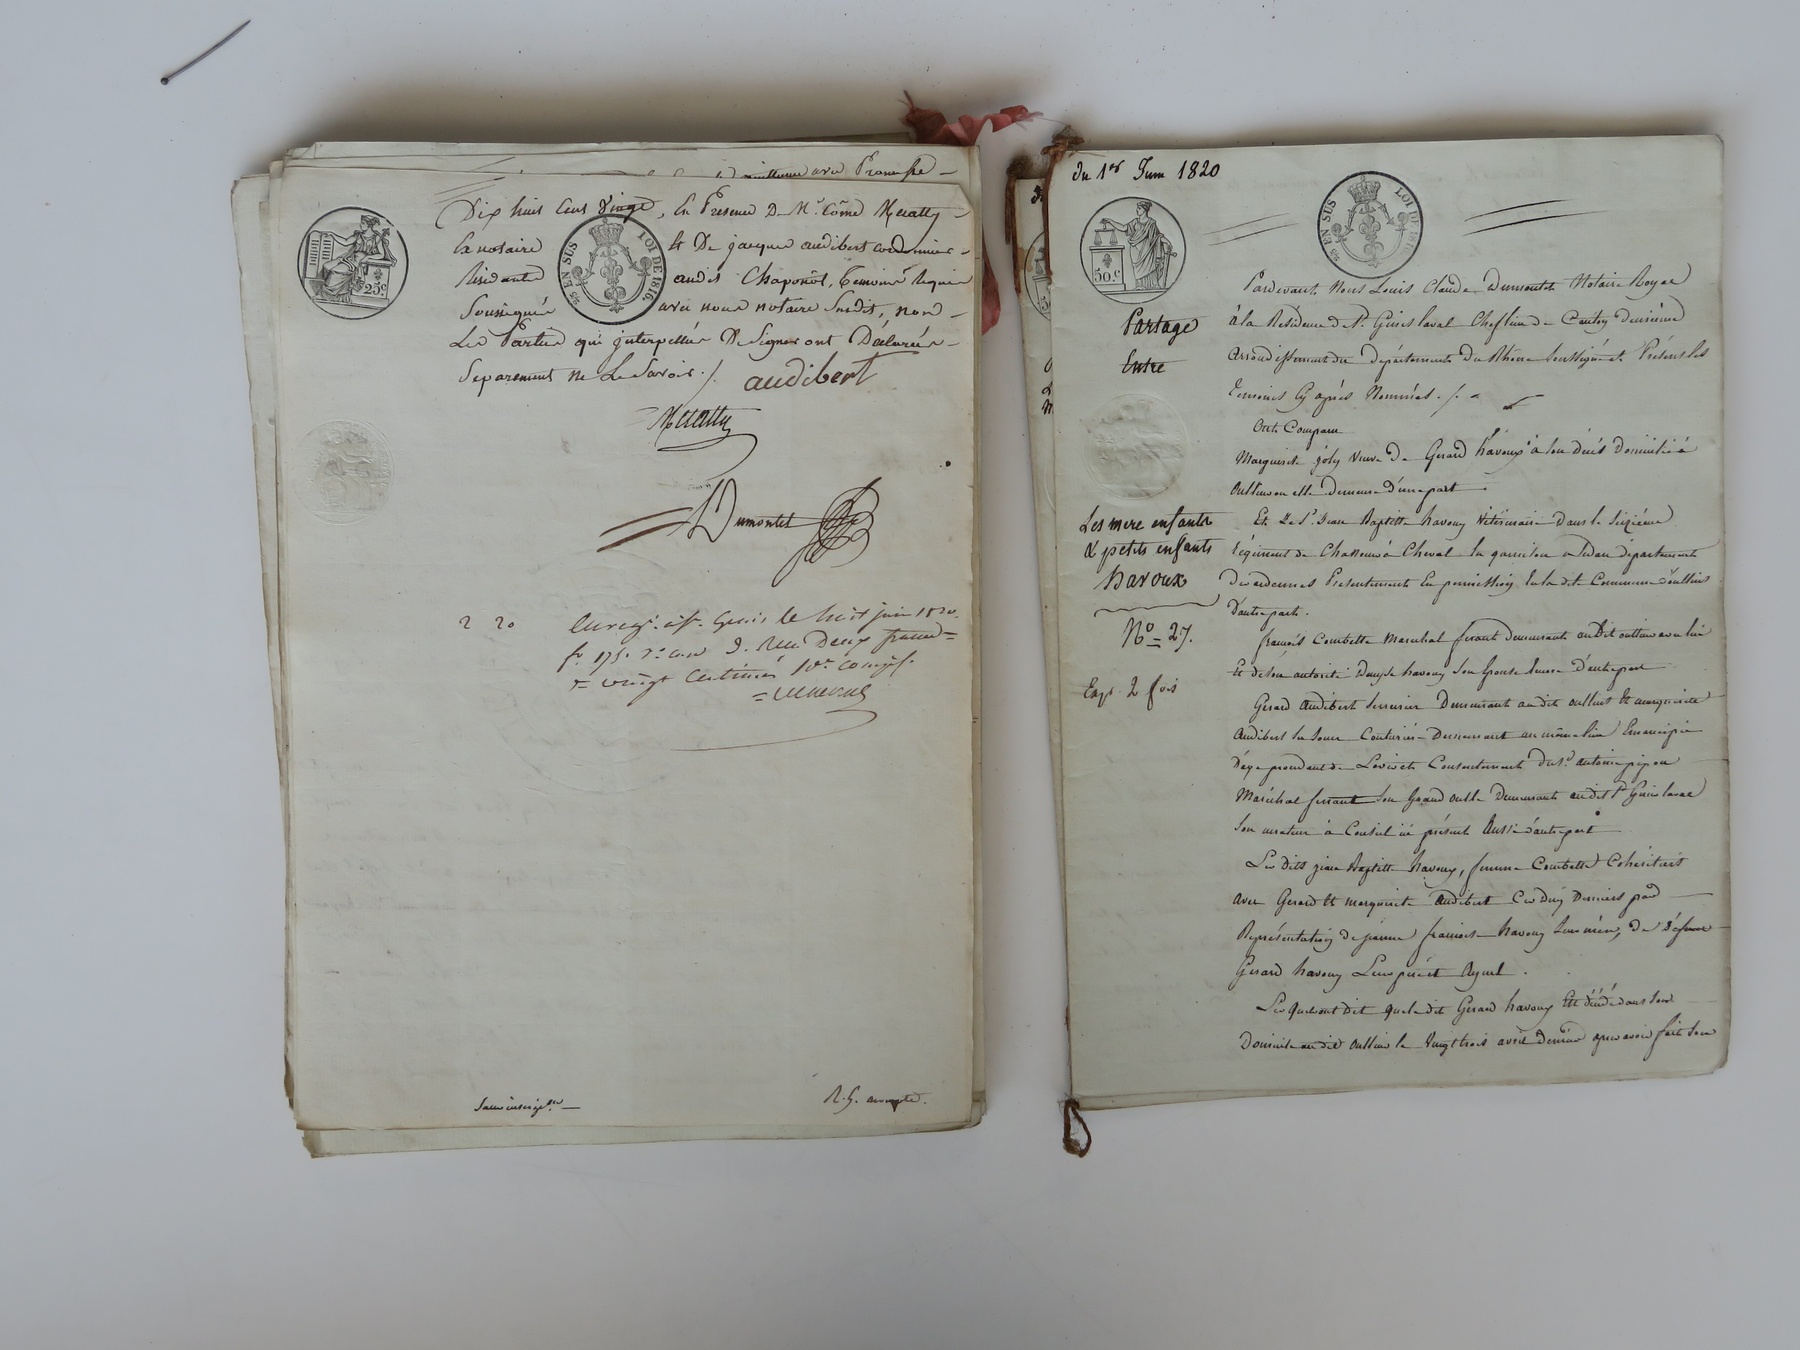 Dix huit cent Vingt, En Presence De Mr. Côme Meatty
la notaire et De jacques audibert cordonnier
Residants audit Chaponôt, Temoins Requis
Soussignés avec nous notaire Susdit, non
Les Parties qui interpellées De Signer ont Déclarées
Separement Ne Le Savoir ./.
audibert
Dumontet
2 20
Enreg. à St. Genis le huit juin 1820
fo. 175. Ro. case 9. Reçu Deux francs
vingt Centimes 10e. compris
25 c.
25 EN SUS
LOI DE 1816.
du 1er Juin 1820
50. c
25 EN SUS
LOI DE 1816
Partage
Entre
Les mere enfants
& petits enfants
havoux
No= 27.
Exp. 2 fois
Pardevant Nous Louis Claude Dumontet Notaire Royal
à la Residence de St. Genis laval Cheflieu de Canton deuxième
arrondissement du département du Rhône soussigné et Présents les
temoins Cy après Nommés ./.
Ont Comparu
Marguerite joly veuve de Gerard havoux à son décès Domicilié à
oullins ou elle Demeure d'une part
Et Le Sr. Jean Baptiste havoux Vétérinaire dans le Seizième
régiment de Chasseurs à Cheval En garnison a Sedan département
des ardennes Présentement En permission En la dite Commune d'oullins
D'autre part.
françois Courbette Marechal ferant demeurant audit oullins avec lui
Et de son autorité havoux Son Epouse D'autre part
Gerard Audibert Serrurier Demeurant audit oullins et marguerite
Audibert Sa Soeur Couturière Demeurant au même lieu Emancipée
D'age procédant de L'avis et Consentement du Sr. antoine pipon
Maréchal ferrant Son Grand oncle Demeurant audit St. Genis laval
Son curateur à Conseil ici présent Aussi d'autre part
Les dits jean Baptiste havoux, femme Courbette Cohéritiers
avec Gerard et marguerite Audibert Ces Deux Derniers par
Représentation de jeanne françoise havoux Leur mère, de Défunt
Gerard havoux Leur père et Ayeul.
Lesquels ont Dit que le dit Gerard havoux Est décédé dans Son
Domicile audit oullins le Vingt trois avril dernier après avoir fait Son